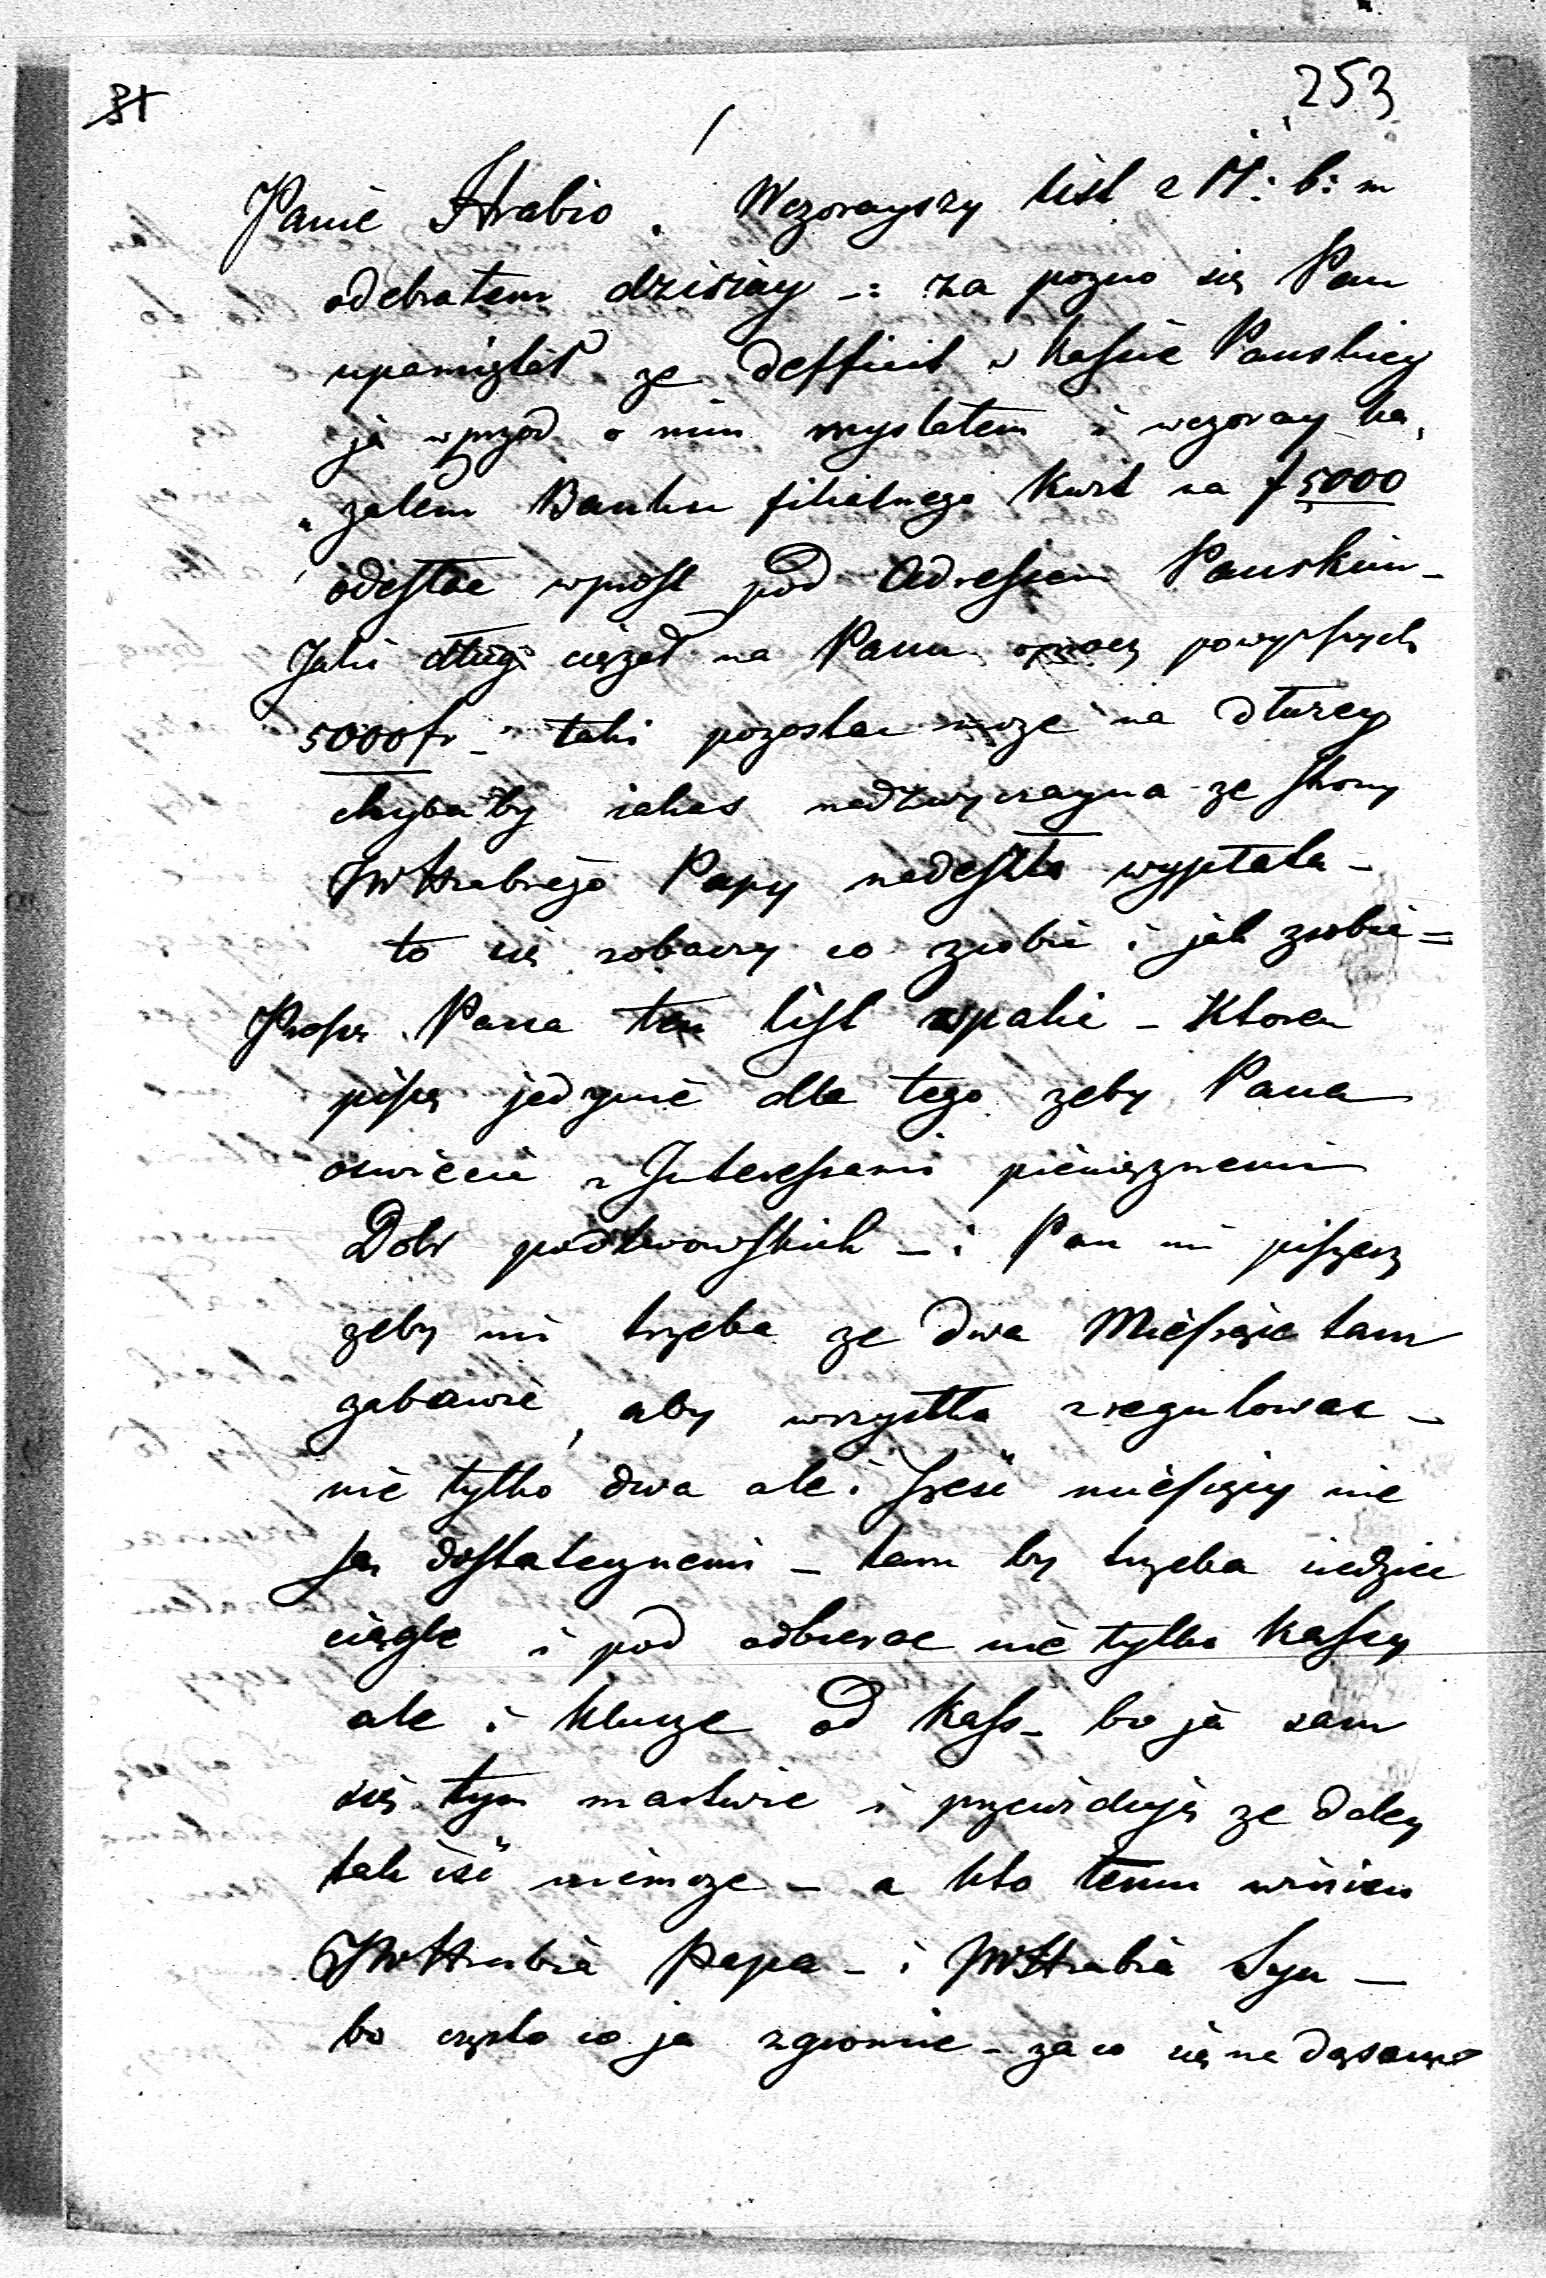 31
253
Panie Hrabio. Wczorayszy list z M: b: m
odebratem dzisiay -: za pozno się Pan
upamiętał ze defficit w kassie Panskiey
ja wprzod o nim myslatem i wczoray ka,
"załem Banku filialnego kwit na f 5000
odesłac wprost pod Adressem Panskim -
Jaki dług ciężał na Panu oprocz powyższych
5000 fr - taki pozostac moze na dłuzey
chyba by iakas nadzwyczayna ze strony
JWHrabiego Papy nadeszła wypłata -
to się zobaczy co zrobic i jak zrobic =
Proszę Pana ten list spalic - ktoren
piszę jedynie dla tego zeby Pana
oswiecic z Interessami pieniężnemi
Dobr podlwowskich - : Pan mi piszesz
zeby mi trzeba ze dwa Miesięce tam
zabawic, aby wszystko zregulowac -
nie tylko dwa ale i szesć miesięcy nie
są dostatecznemi - tam by trzeba siedziec
ciągle i pod odbierac nie tylko kassy
ale i klucze od kass - bo ja sam
się tym martwie i przewiduję ze daley
tak iść niemoze - a kto temu winien
JWHrabia Papa - i JWHrabia Syn -
bo często co ja zgromie - za co się na